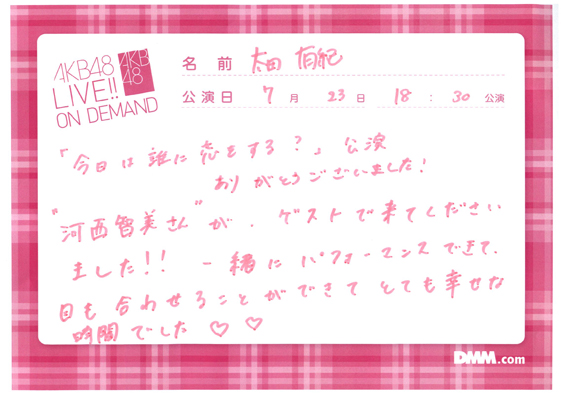 AKB48
LIVE!!
ON DEMAND
AKB
48
名前 太田 有紀
公演日 7月 23日 18:30 公演
「今日は誰に恋をする?」公演
ありがとうございました!
"河西智美さん"が、ゲストで来てください
ました!! 一緒にパフォーマンスできて、
目も合わせることができてとても幸せな
時間でした♡♡
DMM.com